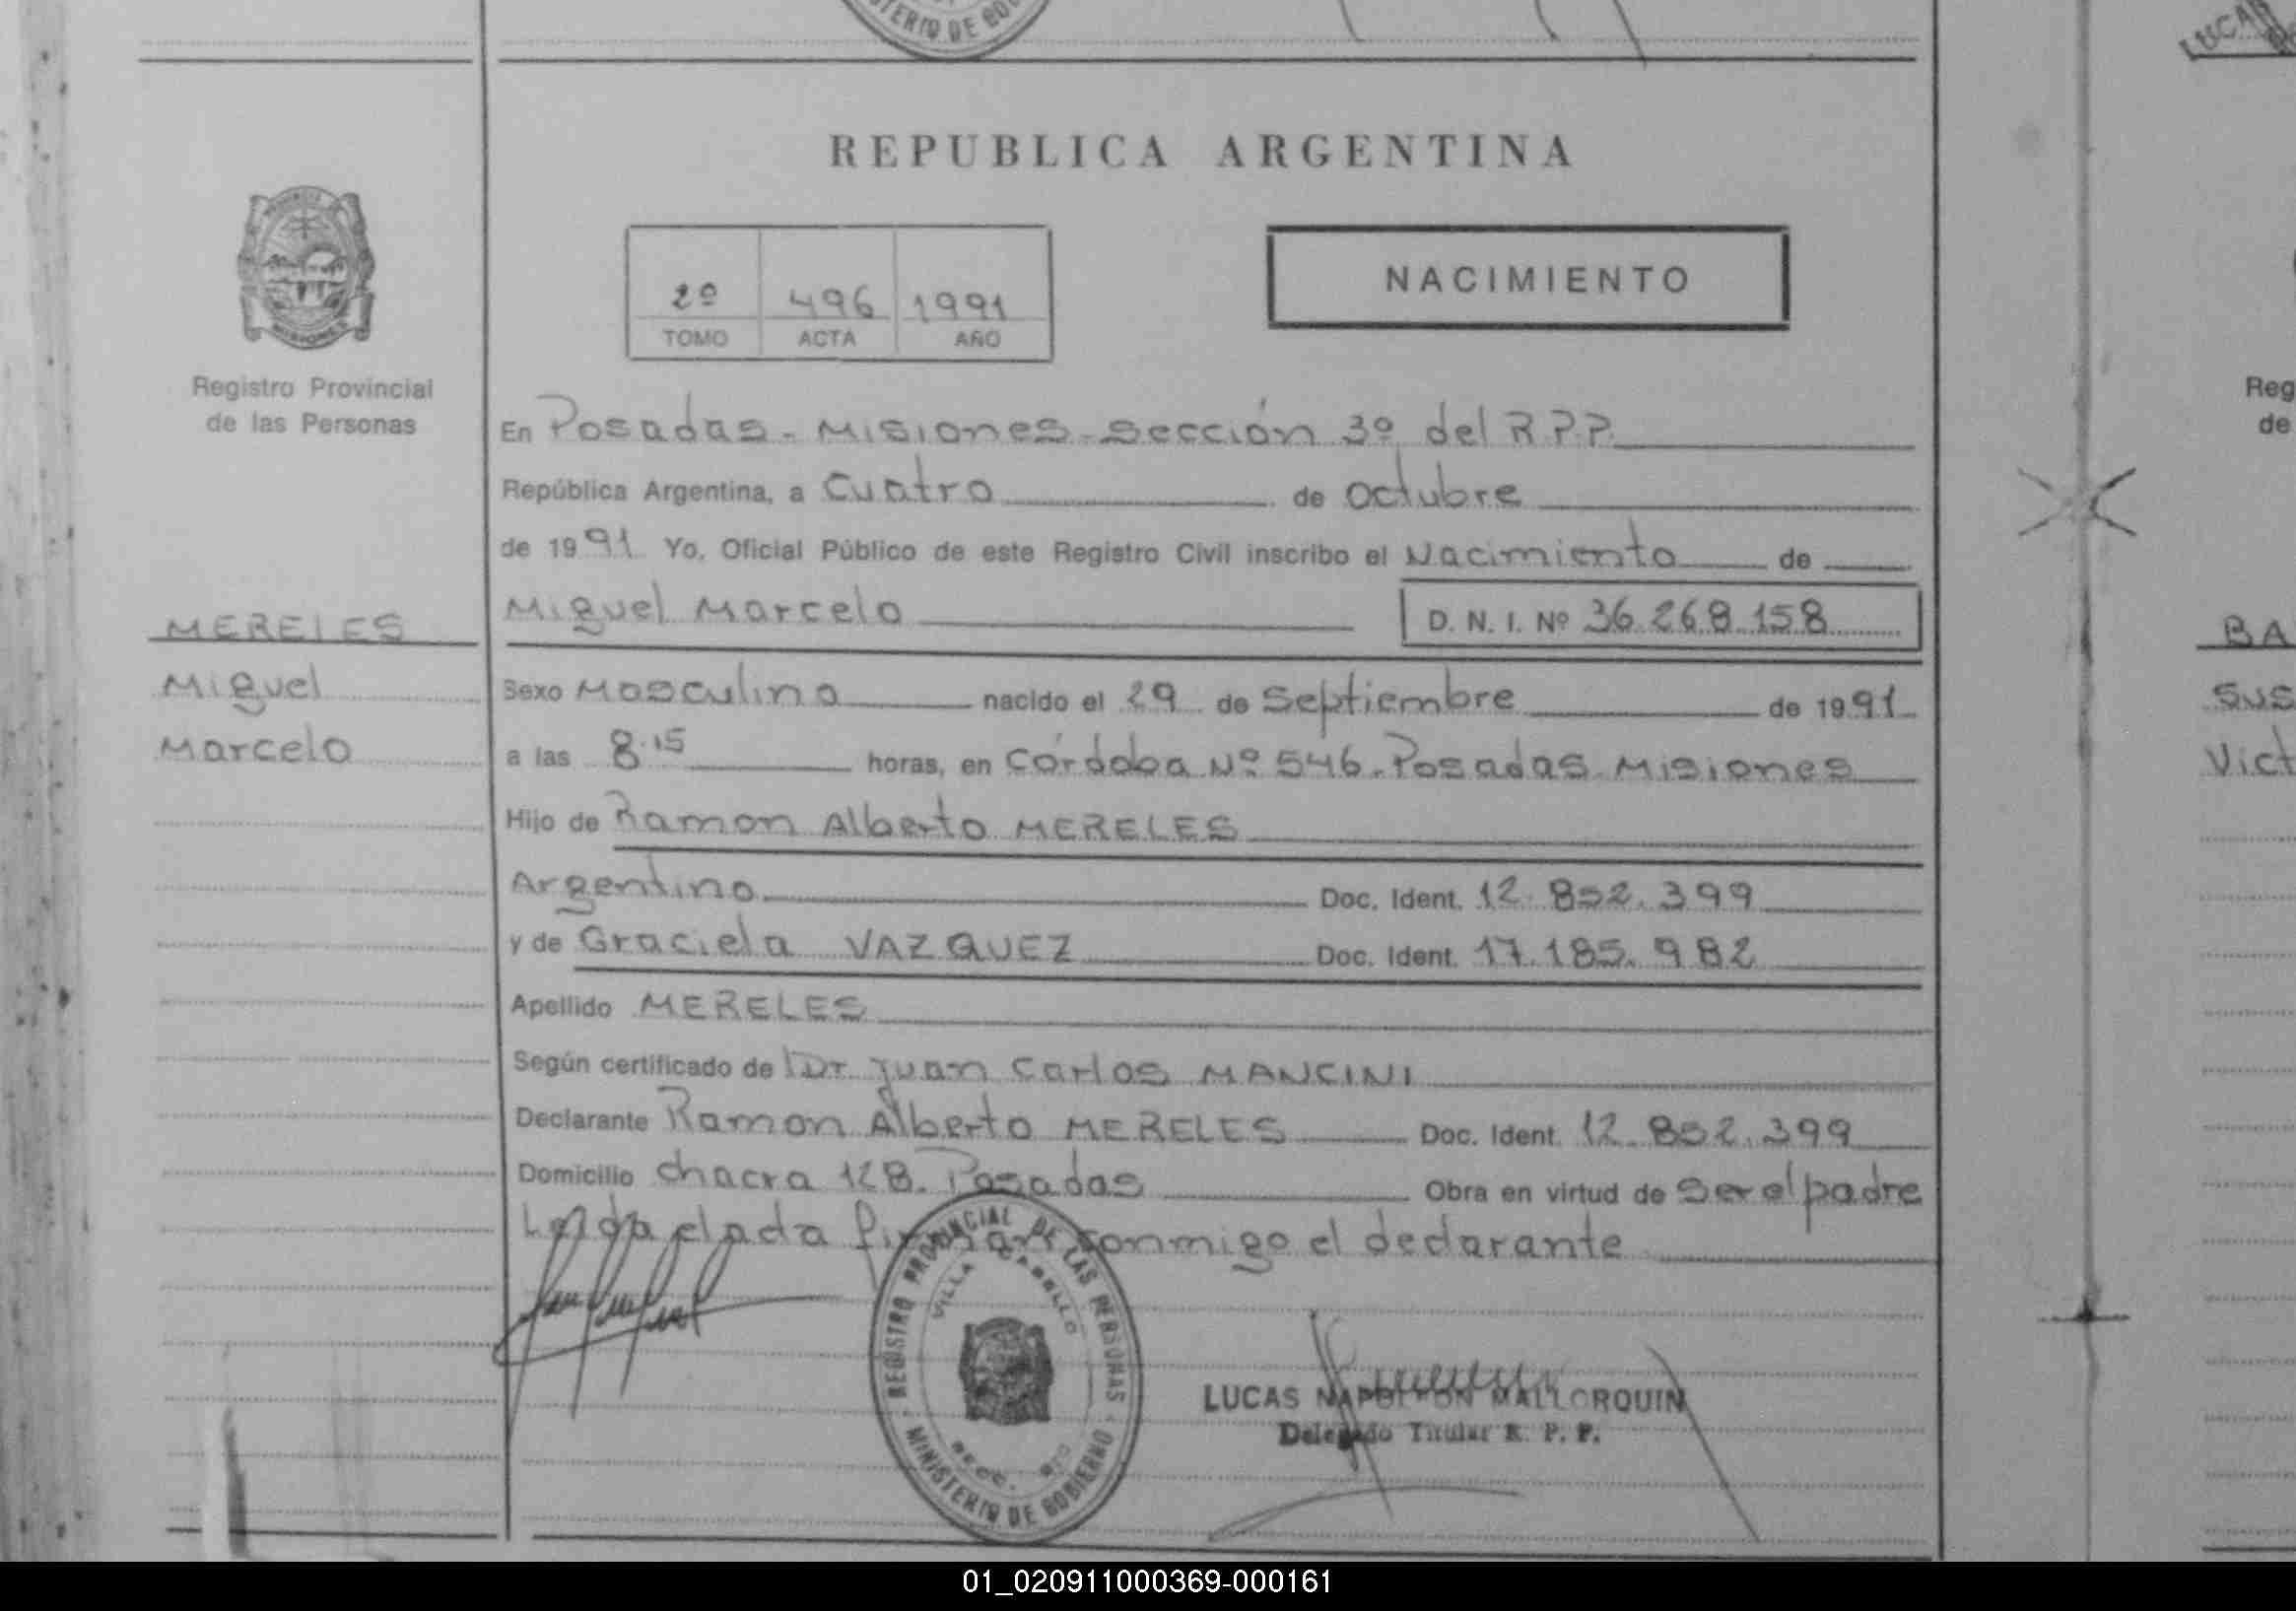 TERIO DE GOB
LUCA
REPUBLICA ARGENTINA
2º 496 1991
TOMO ACTA AÑO
NACIMIENTO
Registro Provincial
de las Personas
En Posadas - Misiones - Sección 3º del R.P.P.
República Argentina, a Cuatro de Octubre
de 1991 Yo, Oficial Público de este Registro Civil inscribo el Nacimiento de
Miguel Marcelo D. N. I. Nº 36.268.158
MERELES
Miguel
Marcelo
Sexo Masculino nacido el 29 de Septiembre de 1991
a las 8.15 horas, en Córdoba Nº 546. Posadas Misiones
Hijo de Ramon Alberto MERELES
Argentino Doc. Ident. 12.852.399
y de Graciela VAZQUEZ Doc. Ident. 17.185.982
Apellido MERELES
Según certificado de Dr Juan Carlos MANCINI
Declarante Ramon Alberto MERELES Doc. Ident. 12.852.399
Domicilio chacra 128. Posadas Obra en virtud de Ser el padre
Leida el acta firmará conmigo el declarante
REGISTRO PROVINCIAL DE LAS PERSONAS
VILLA CABELLO
MINISTERIO DE GOBIERNO
LUCAS NAPOLEON MALLORQUIN
Delegado Titular R. P. P.
Reg
de
BA
Sus
Vict
01_020911000369-000161